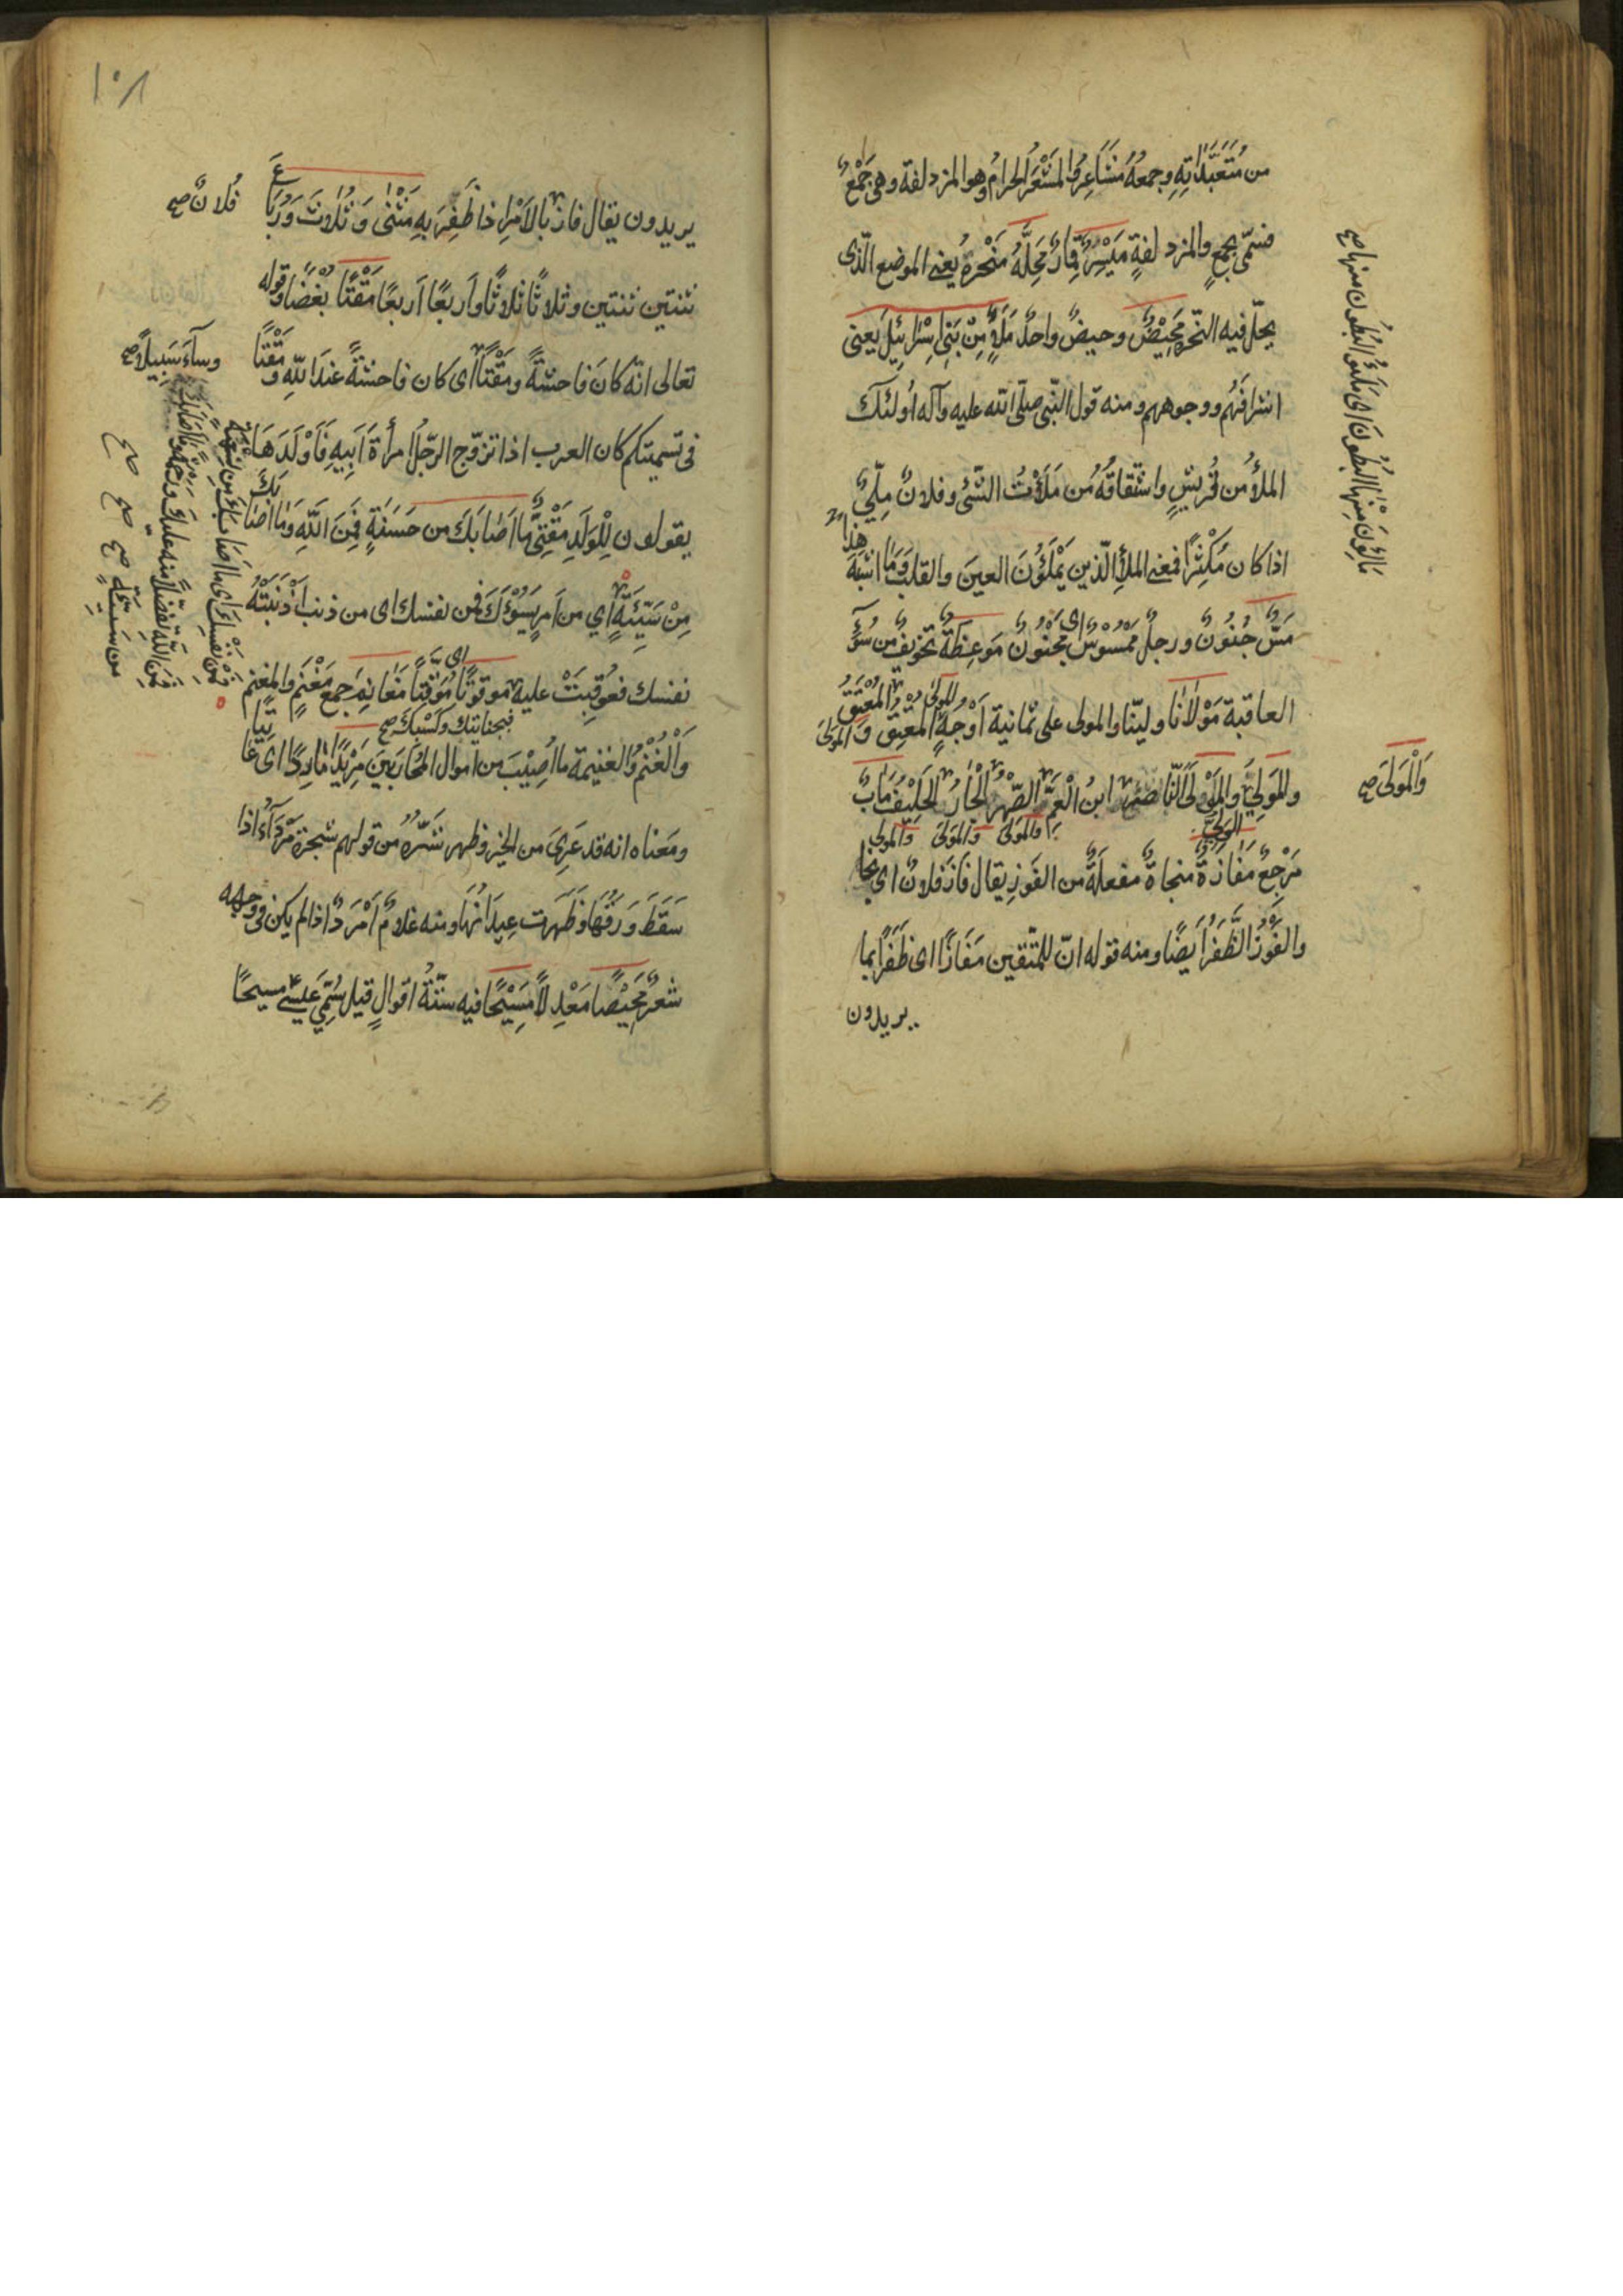 من مُتَعَبَّدَاتِهِ وجمعُهُ مَشَاعِرُ والمَشْعَرُ الحرامُ وهو المزدلفة وهى جَمْعٌ
فتسمّى بجمعٍ والمزدلفةِ مَيْسِرٌ قِمَارٌ مَحِلَّهُ مَنْحَرهُ يُعنى الموضع الّذى
يحلّ فيه النّحر مَحِيْضٌ وحيضٌ واحدٌ مَلَإٍ مِنْ بَنِى اِسْرَائِيْلَ يعنى
اشرافَهُم ووجوههم ومنه قول النّبى صلّى الله عليه وآله اولئك
الملأُ من قُريشٍ واشتقاقُهُ من مَلَأْتُ الشّئ وفلانٌ مِلّئٌ
اذا كان مُكْثِرًا فمعنى الملأِ الّذين يَمْلَؤُنَ العينَ والقلبَ وَمَا اشْبَهَ
هٰذا
مَسٌّ جُنُونٌ ورجلٌ مَمْسُوْسٌ اى مَجْنُوْنٌ مَوْعِظَةٌ تخويفٌ من سُوْءِ
العاقبة مَوْلَانَا وليّنا والمولى على ثمانية اَوْجُهٍ المُعْتِقُ وَالمَوْلى
وَالمَوْلى المُعْتَقُ
والمَوْلى الوَلِىُّ والمَوْلَى النّاصر ابنُ الْعَمِّ الصّهْرُ الْجَارُ الحَلِيْفُ مَاٰبٌ
والمَوْلى والمَوْلى والمولى
مَرْجِعٌ مَفَازَةٌ منجاةٌ مفعلَةٌ من الفَوز يقال فَازَ فلانٌ اى نجا
والفَوْزُ الظَّفَرُ اَيضًا ومنه قوله انّ للمتّقين مَفَازًا اى ظَفَرًا بما
يريدون
مَالِؤُنَ مِنْهَا البُطُوْنَ اى مَلَؤُ البُطُون منها صح
وَالْمَوْلىَ صح
١٠٨
يريدون يقال فاز بالاَمْرِ اذا ظَفِرَ بِهِ مَثْنٰى وَثُلٰاثَ وَرُبَاعَ
فُلانٌ صح
ثنتين ثنتين وثلاثًا ثلاثًا واَربعًا اَربعًا مَقْتًا بُغْضًا وقوله
تعالى انّه كانَ فاحشةً ومَقْتًا اى كان فاحشةً عند اللهِ وَمَقْتًا
وسآءَ سَبِيلًا صح
فى تسميتكم كان العرب اذا تزوّج الرّجلُ امرأةَ اَبِيهِ فَاَوْلَدَهَا
يقولون لِلْوَلَدِ مَقْتِىٌّ مَا اَصَابَكَ من حَسَنَةٍ فَمِنَ اللهِ وَمَا اصَابَكَ
مِنْ سَيِّئَةٍ اي من اَمرٍ يَسُوْءُكَ فمن نفسك اى من ذنب اَذْنَبَتْهُ
نفسك فعُوقِبَتْ عليه موقوتًا اى مُوَقَّتًا مَغَانِمَ جمع مَغْنَمٍ والمغنم
فبجنايتك وكسبك صح
وَالْغُنْمُ وُالغنيمة ما اُصِيْبَ من اموال المُحَارَبِينَ مَرِيْدًا مَارِدًا اى عَاتِيًا
ومَعناه انه قد عَرِىَ من الخير وظهر شَرُّهُ من قولهم شجرة مَرْدَآءُ اذا
سَقَطَ وَرَقُهَا وظَهَرت عِيدَانُهَا ومنه غلامٌ اَمْرَدُ اذا لم يكن فى وجهه
شعرٌ مَحِيْصًا مَعْدِلًا مَسِيْحًا فيه ستّةُ اقوالٍ قيل سُمّى عيسى مسيحًا
فَمِنَ اللهِ تفضّلًا منه عليك
صح صح صح